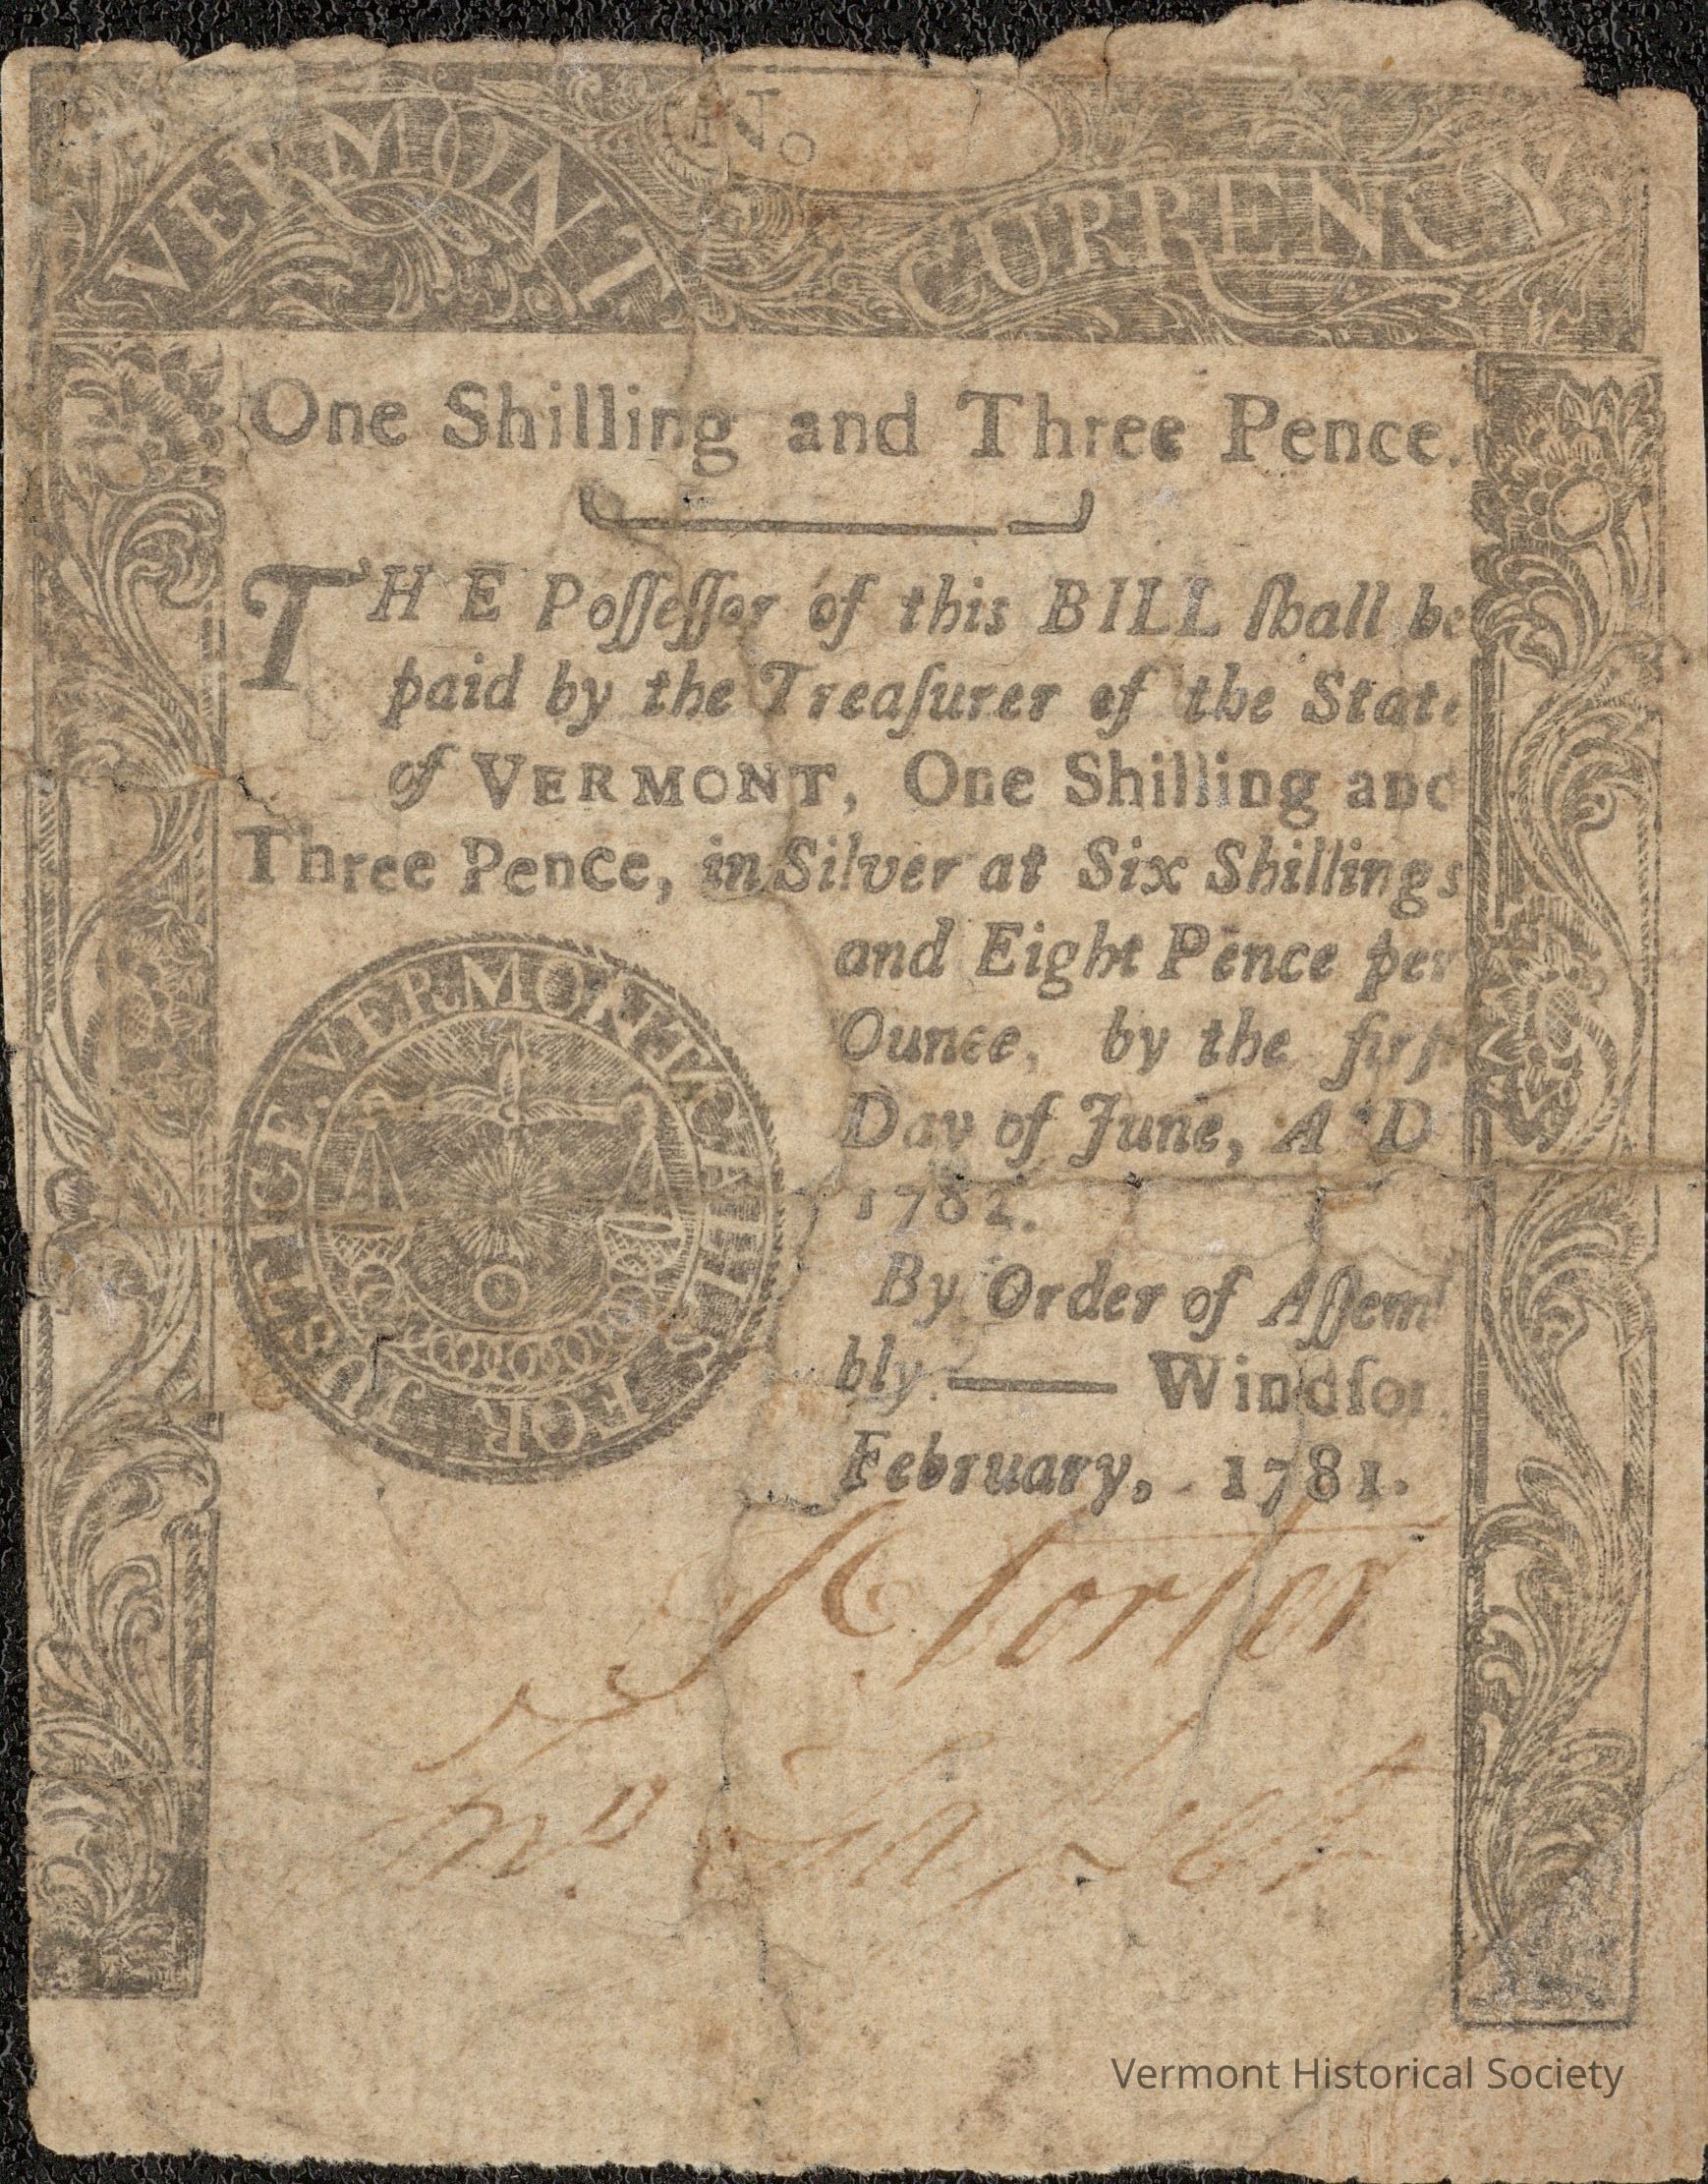 No
VERMONT CURRENCY
One Shilling and Three Pence.
THE Poſſeſſor of this BILL ſhall be
paid by the Treaſurer of the State
of VERMONT, One Shilling and
Three Pence, in Silver at Six Shillings
and Eight Pence per
Ounce, by the firſt
Day of June, A D
1782.
By Order of Aſſem
bly. — Windſor,
February, 1781.
VERMONT CALLS FOR JUSTICE
Porter
Vermont Historical Society